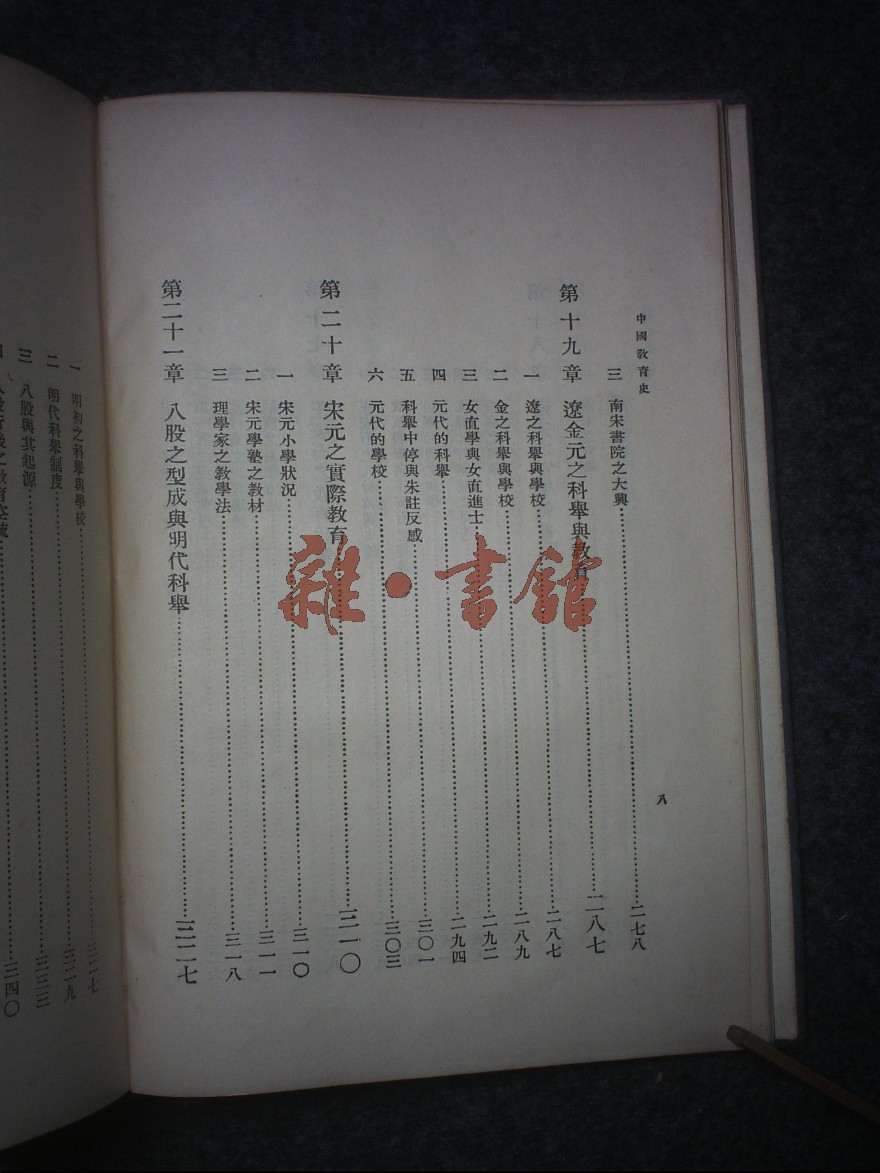 中國教育史
八
三 南宋書院之大興……二七八
第十九章 遼金元之科舉與教育……二八七
一 遼之科舉與學校……二八七
二 金之科舉與學校……二八九
三 女直學與女直進士……二九二
四 元代的科舉……二九四
五 科舉中停與朱註反感……三〇一
六 元代的學校……三〇三
第二十章 宋元之實際教育……三一〇
一 宋元小學狀況……三一〇
二 宋元學塾之教材……三一一
三 理學家之教學法……三一八
第二十一章 八股之型成與明代科舉……三二七
一 明初之科舉與學校……三二七
二 明代科舉制度……三二九
三 八股與其起源……三三三
之教育……三四〇
雜·書館